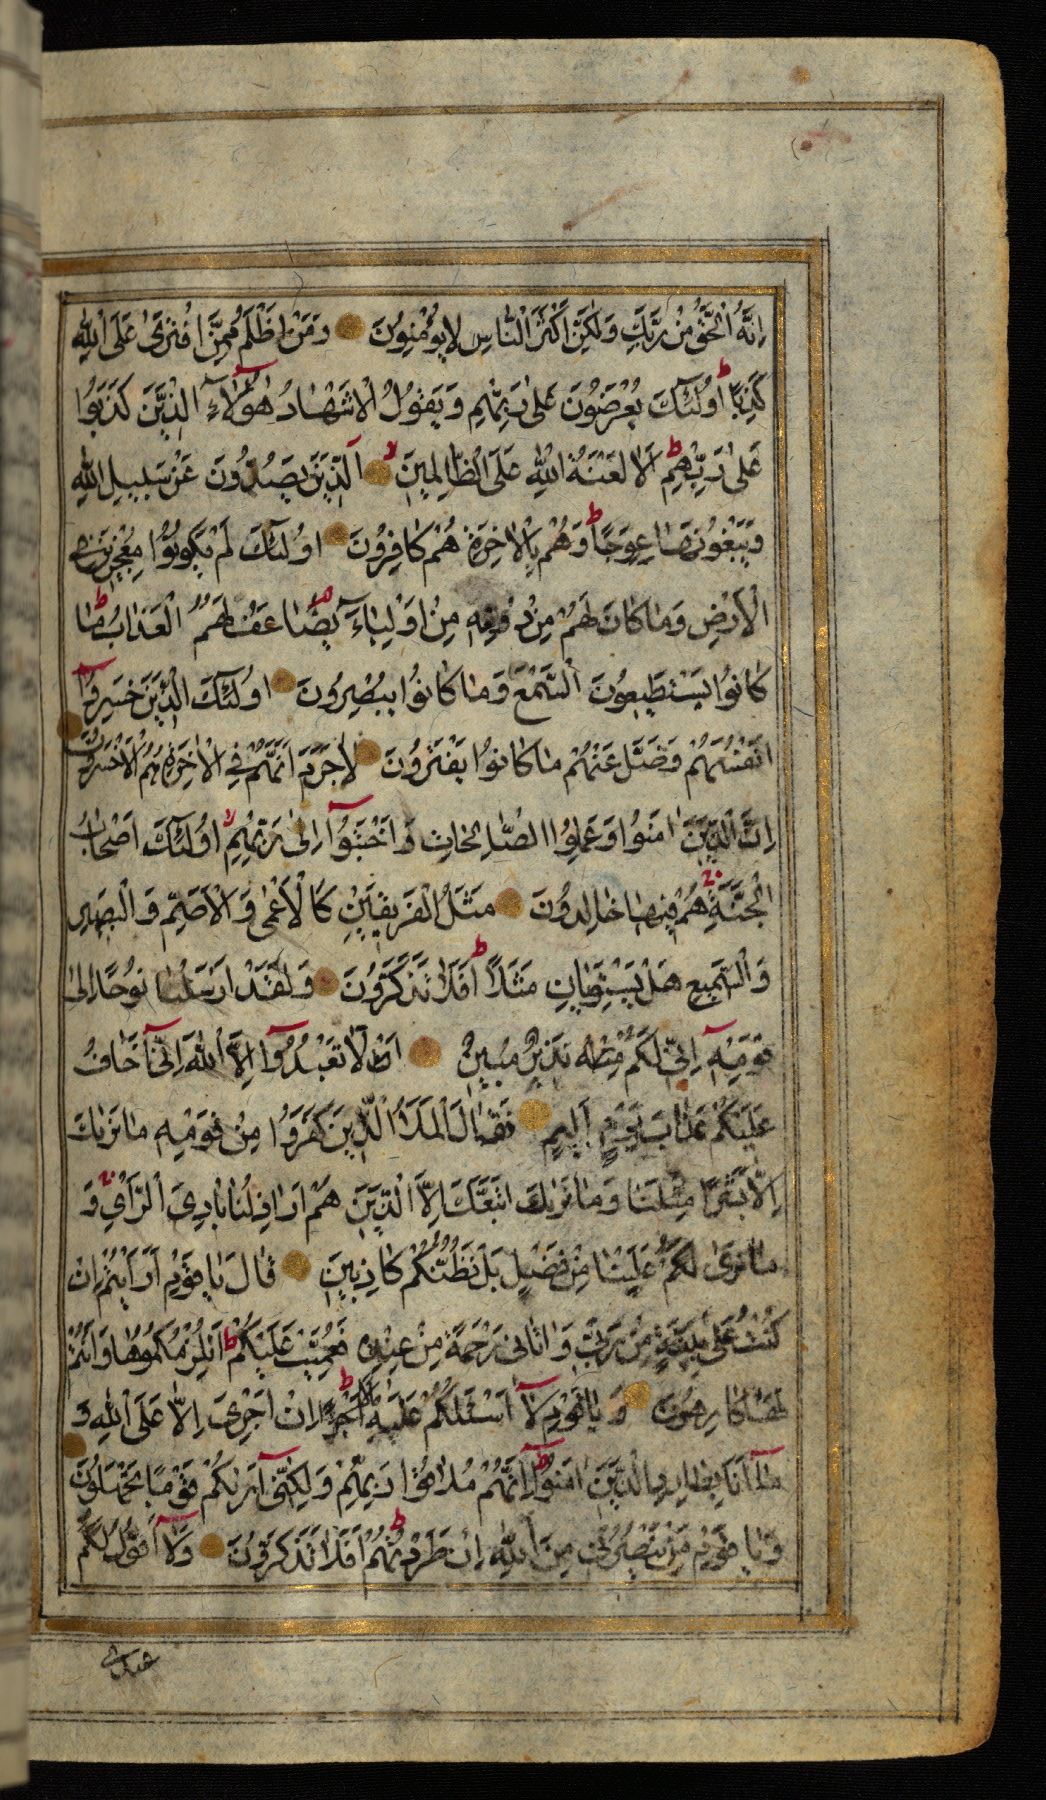 اِنَّهُ الْحَقُّ مِنْ رَبِّكَ وَلٰكِنَّ اَكْثَرَ النَّاسِ لَا يُؤْمِنُونَ وَمَنْ اَظْلَمُ مِمَّنِ افْتَرٰى عَلَى اللّٰهِ
كَذِبًا ط اُولٰئِكَ يُعْرَضُونَ عَلٰى رَبِّهِمْ وَيَقُولُ الْاَشْهَادُ هٰؤُلَآءِ الَّذِينَ كَذَبُوا
عَلٰى رَبِّهِمْ ط اَلَا لَعْنَةُ اللّٰهِ عَلَى الظَّالِمِينَ لا اَلَّذِينَ يَصُدُّونَ عَنْ سَبِيلِ اللّٰهِ
وَيَبْغُونَهَا عِوَجًا ط وَهُمْ بِالْاٰخِرَةِ هُمْ كَافِرُونَ اُولٰئِكَ لَمْ يَكُونُوا مُعْجِزِينَ فِي
الْاَرْضِ وَمَا كَانَ لَهُمْ مِنْ دُونِ اللّٰهِ مِنْ اَوْلِيَآءَ يُضَاعَفُ لَهُمُ الْعَذَابُ ط مَا
كَانُوا يَسْتَطِيعُونَ السَّمْعَ وَمَا كَانُوا يُبْصِرُونَ اُولٰئِكَ الَّذِينَ خَسِرُوآ
اَنْفُسَهُمْ وَضَلَّ عَنْهُمْ مَا كَانُوا يَفْتَرُونَ لَاجَرَمَ اَنَّهُمْ فِي الْاٰخِرَةِ هُمُ الْاَخْسَرُونَ
اِنَّ الَّذِينَ اٰمَنُوا وَعَمِلُوا الصَّالِحَاتِ وَاَخْبَتُوآ اِلٰى رَبِّهِمْ لا اُولٰئِكَ اَصْحَابُ
الْجَنَّةِ هُمْ فِيهَا خَالِدُونَ مَثَلُ الْفَرِيقَيْنِ كَالْاَعْمٰى وَالْاَصَمِّ وَالْبَصِيرِ
وَالسَّمِيعِ هَلْ يَسْتَوِيَانِ مَثَلًا ط اَفَلَا تَذَكَّرُونَ وَلَقَدْ اَرْسَلْنَا نُوحًا اِلٰى
قَوْمِهٖ اِنِّي لَكُمْ نَذِيرٌ مُبِينٌ اَنْ لَا تَعْبُدُوآ اِلَّا اللّٰهَ اِنِّيآ اَخَافُ
عَلَيْكُمْ عَذَابَ يَوْمٍ اَلِيمٍ فَقَالَ الْمَلَاُ الَّذِينَ كَفَرُوا مِنْ قَوْمِهٖ مَا نَرٰىكَ
اِلَّا بَشَرًا مِثْلَنَا وَمَا نَرٰىكَ اتَّبَعَكَ اِلَّا الَّذِينَ هُمْ اَرَاذِلُنَا بَادِيَ الرَّاْيِ وَ
مَا نَرٰى لَكُمْ عَلَيْنَا مِنْ فَضْلٍ بَلْ نَظُنُّكُمْ كَاذِبِينَ قَالَ يَا قَوْمِ اَرَاَيْتُمْ اِنْ
كُنْتُ عَلٰى بَيِّنَةٍ مِنْ رَبِّي وَاٰتَانِي رَحْمَةً مِنْ عِنْدِهٖ فَعُمِّيَتْ عَلَيْكُمْ ط اَنُلْزِمُكُمُوهَا وَاَنْتُمْ
لَهَا كَارِهُونَ وَيَا قَوْمِ لَآ اَسْئَلُكُمْ عَلَيْهِ اَجْرًا ط اِنْ اَجْرِيَ اِلَّا عَلَى اللّٰهِ وَ
مَآ اَنَا بِطَارِدِ الَّذِينَ اٰمَنُوا ط اِنَّهُمْ مُلَاقُوا رَبِّهِمْ وَلٰكِنِّيآ اَرٰىكُمْ قَوْمًا تَجْهَلُونَ
وَيَا قَوْمِ مَنْ يَنْصُرُنِي مِنَ اللّٰهِ اِنْ طَرَدْتُهُمْ ط اَفَلَا تَذَكَّرُونَ وَلَآ اَقُولُ لَكُمْ
عندي